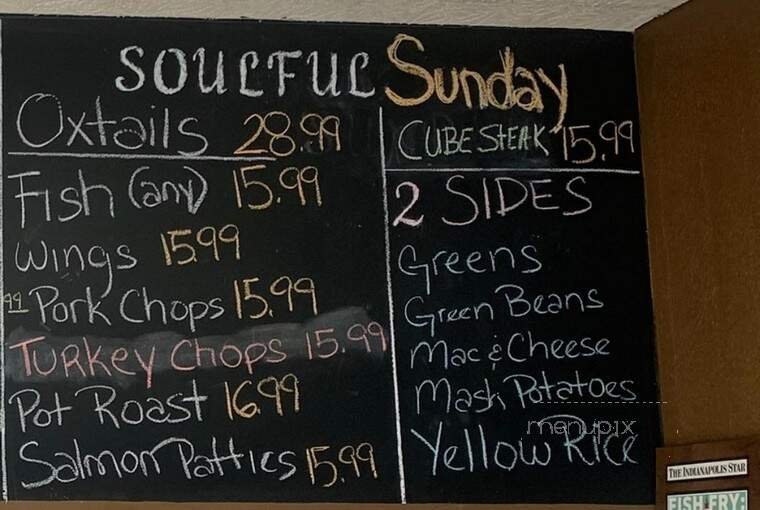 SOULFUL Sunday
Oxtails 28.99
Fish (any) 15.99
Wings 15.99
99 Pork Chops 15.99
Turkey Chops 15.99
Pot Roast 16.99
Salmon Patties 15.99
CUBE STEAK 15.99
2 SIDES
Greens
Green Beans
Mac & Cheese
Mash Potatoes
Yellow Rice
menupix
THE INDIANAPOLIS STAR
FISH FRY: